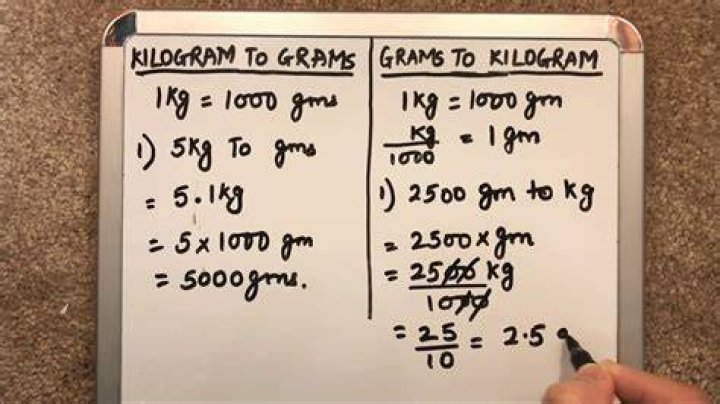 KILOGRAM TO GRAMS
1Kg = 1000 gms
1) 5Kg To gms
= 5.1kg
= 5 x 1000 gm
= 5000gms.
GRAMS TO KILOGRAM
1Kg = 1000 gm
Kg/1000 = 1 gm
1) 2500 gm to kg
= 2500 x gm
= 2500/1000 kg
= 25/10 = 2.5